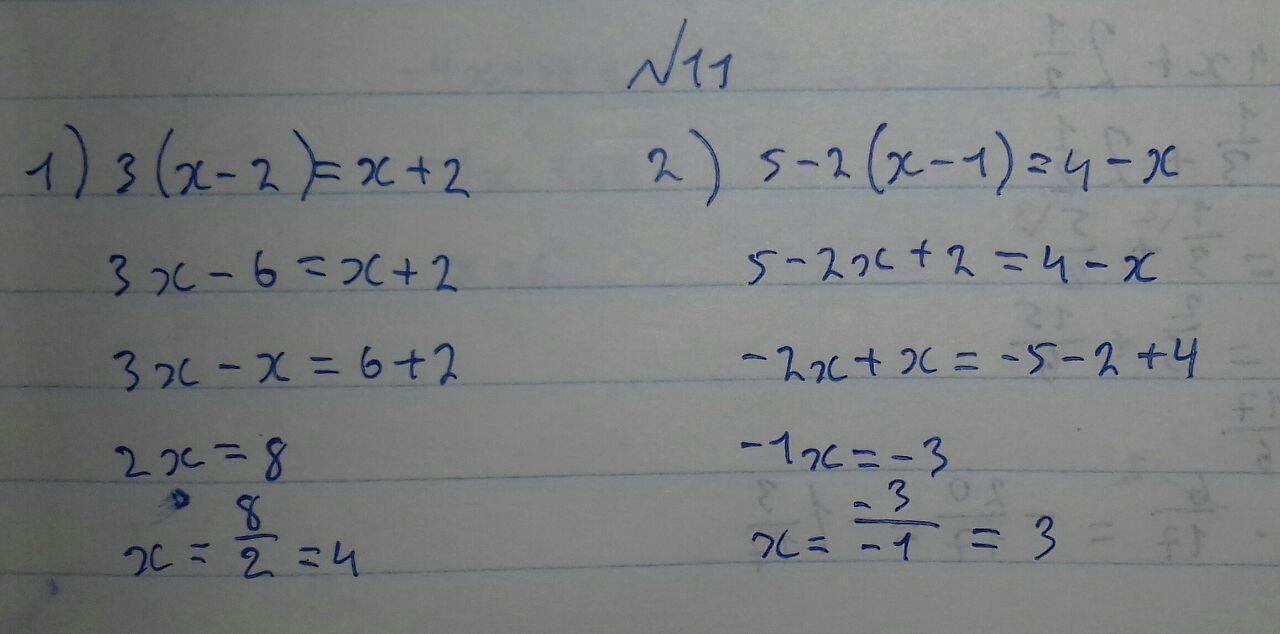 №11
1) 3(x-2)=x+2
3x-6=x+2
3x-x=6+2
2x=8
x=8/2=4
2) 5-2(x-1)=4-x
5-2x+2=4-x
-2x+x=-5-2+4
-1x=-3
x=-3/-1=3